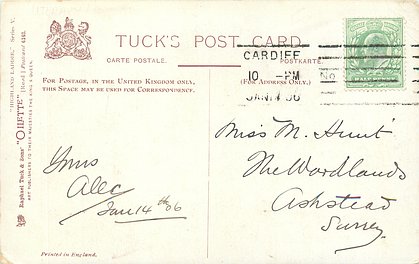 TUCK'S POST CARD
CARTE POSTALE.
POSTKARTE.
FOR POSTAGE, IN THE UNITED KINGDOM ONLY,
THIS SPACE MAY BE USED FOR CORRESPONDENCE.
(FOR ADDRESS ONLY.)
CARDIFF
10 - PM
JAN 14 06
"HIGHLAND LADDIE." Series V.
Raphael Tuck & Sons' "OILETTE" [Regd.] Postcard
ART PUBLISHERS TO THEIR MAJESTIES THE KING & QUEEN.
Yours
Alec
Jan 14th 06
Miss M. Hunt
The Woodlands
Ashstead
Surrey
Printed in England.